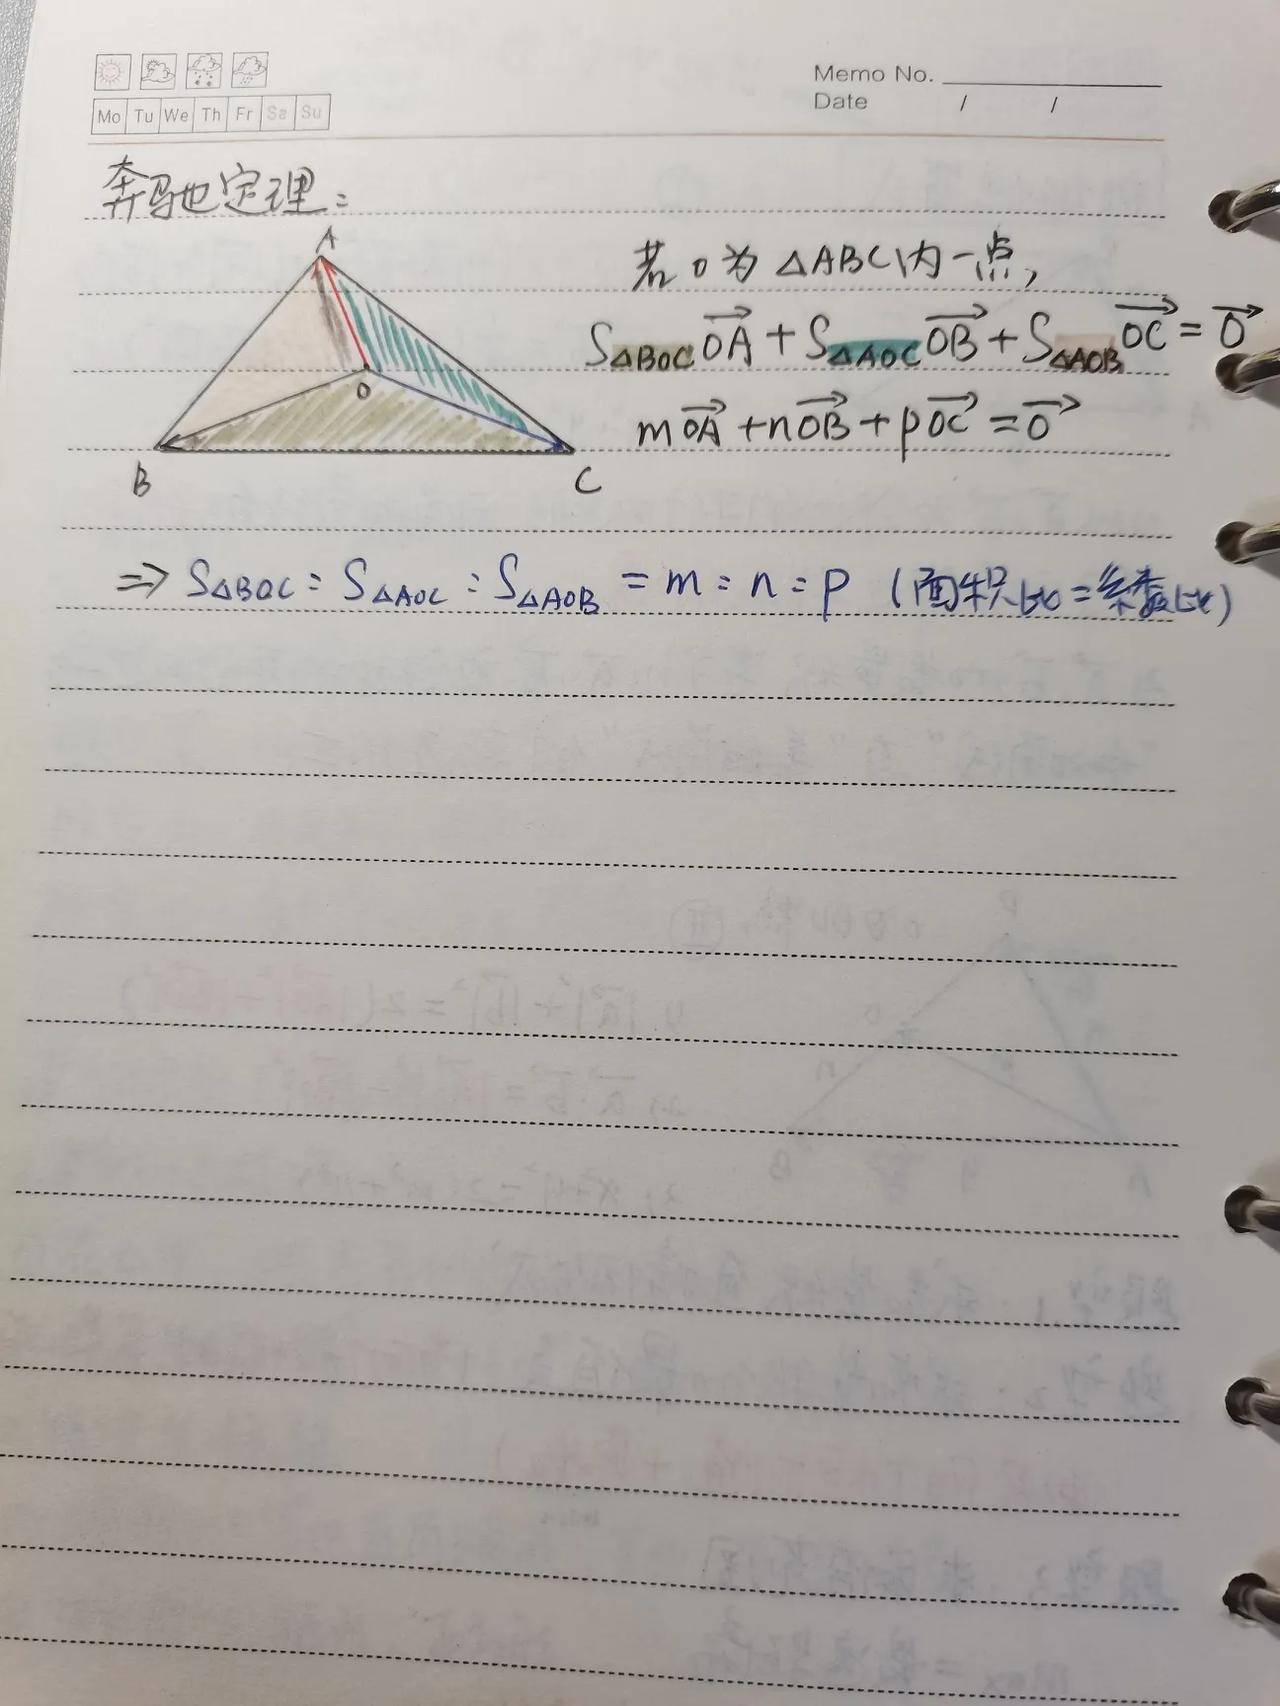 Memo No.
Mo Tu We Th Fr Sa Su
Date / /
奔驰定理:
A
若O为△ABC内一点,
S△BOC OA + S△AOC OB + S△AOB OC = 0
O
mOA + nOB + pOC = 0
B
C
=> S△BOC : S△AOC : S△AOB = m : n : p (面积比=系数比)